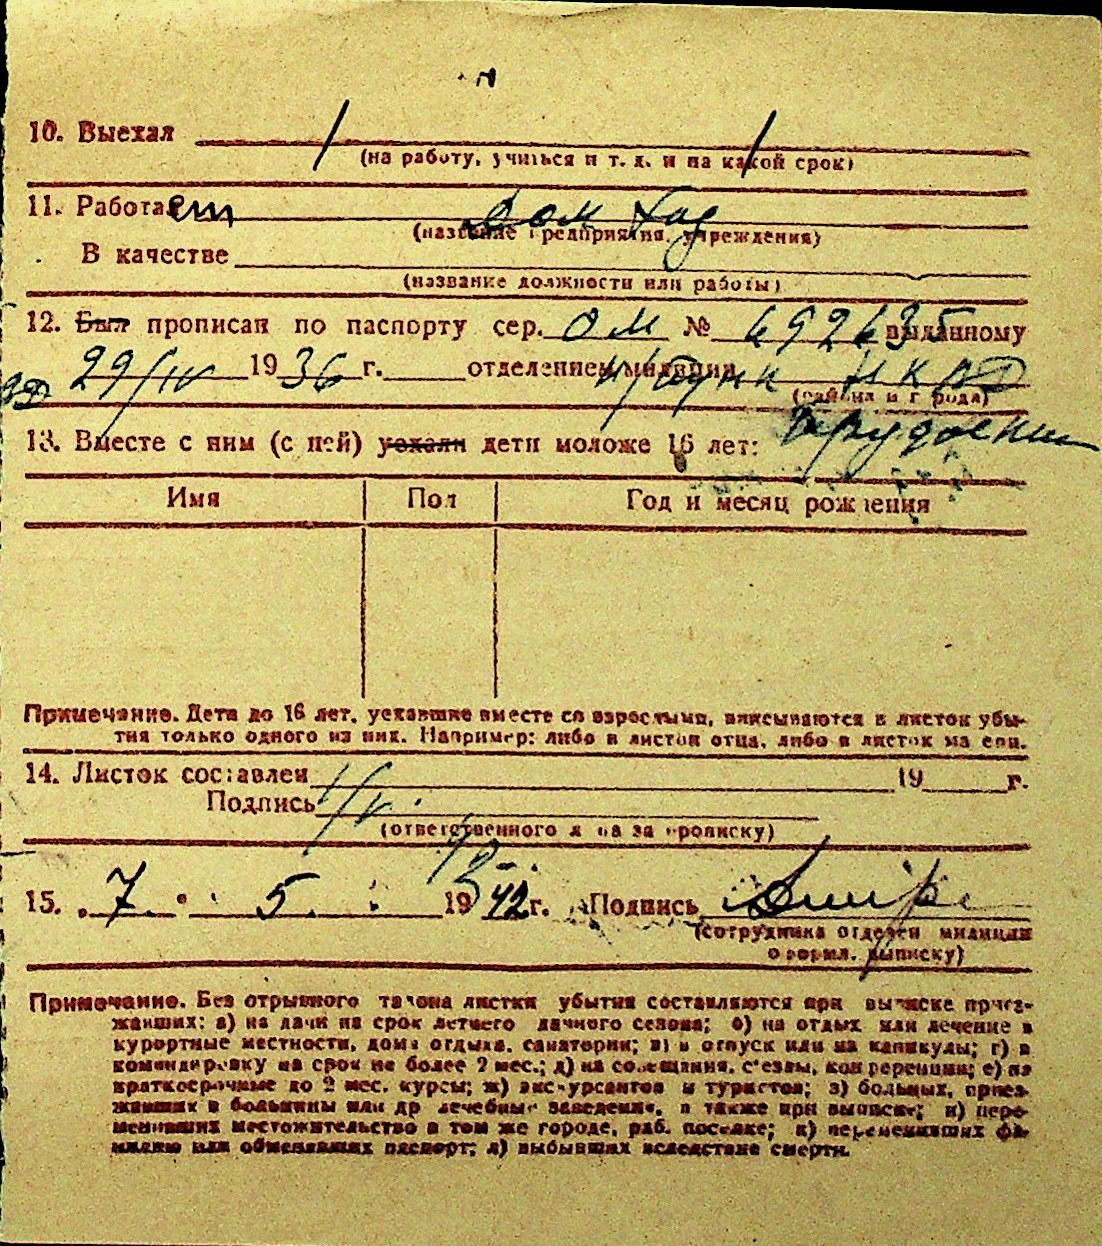 10. Выехал / /
(на работу, учиться и т. д. и на какой срок)
11. Работает Дом Хоз
(название предприятия, учреждения)
В качестве
(название должности или работы)
12. Был прописан по паспорту сер. ОМ № 692635 выданному
29/IV 1936 г. отделением милиции НКВД
(района и города)
13. Вместе с ним (с ней) уехали дети моложе 16 лет:
Имя Пол Год и месяц рождения
Примечание. Дети до 16 лет, уехавшие вместе со взрослыми, вписываются в листок убы-
тия только одного из них. Например: либо в листок отца, либо в листок матери.
14. Листок составлен 19 г.
Подпись
(ответственного лица за прописку)
15. 7 5 1942 г. Подпись
(сотрудника отделен милиции
оформл. выписку)
Примечание. Без отрывного талона листки убытия составляются при выписке приез-
жавших: а) на дачи на срок летнего дачного сезона; б) на отдых или лечение в
курортные местности, дома отдыха, санатории; в) в отпуск или на каникулы; г) в
командировку на срок не более 2 мес.; д) на совещания, съезды, конференции; е) на
краткосрочные до 2 мес. курсы; ж) экскурсантов и туристов; з) больных, приез-
жавших в больницы или др лечебные заведения, а также при выписке; и) пере-
менивших местожительство в том же городе, раб. поселке; к) переменивших фа-
милию или обменявших паспорт; л) выбывших вследствие смерти.